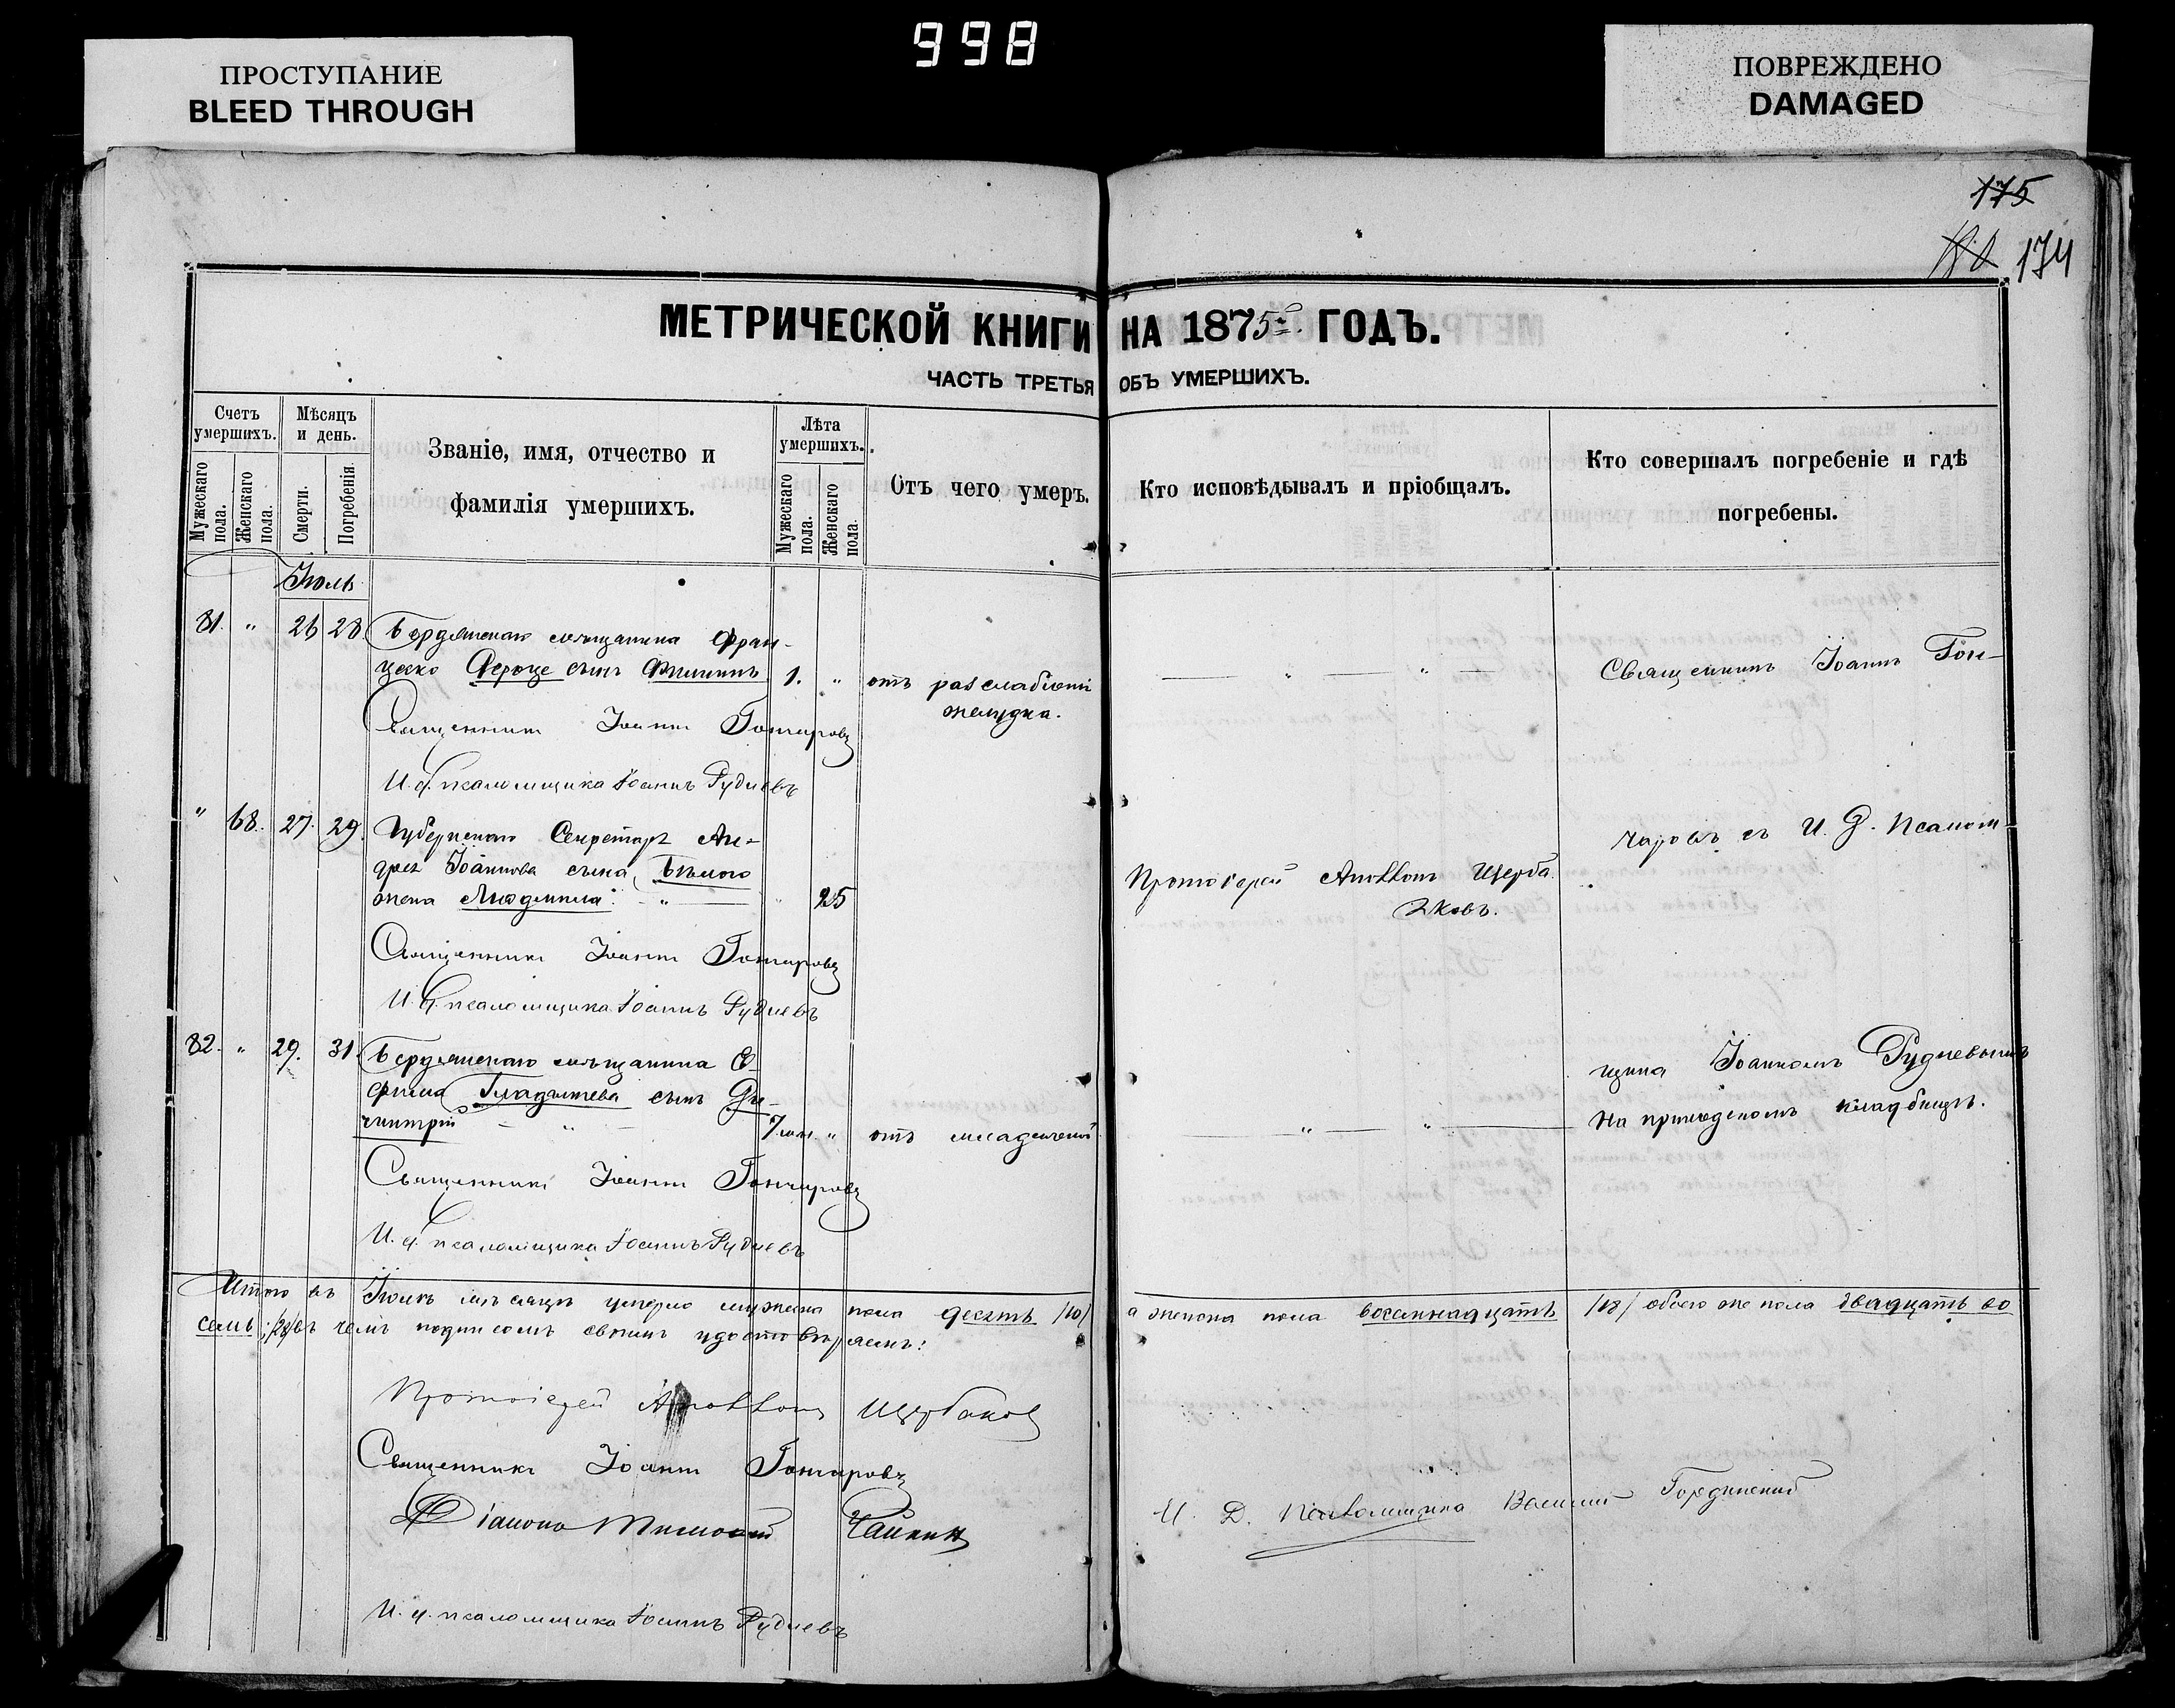 998
ПРОСТУПАНИЕ
BLEED THROUGH
ПОВРЕЖДЕНО
DAMAGED
175
174
МЕТРИЧЕСКОЙ КНИГИ НА 1875 ГОДЪ.
ЧАСТЬ ТРЕТЬЯ ОБЪ УМЕРШИХЪ.
Счетъ умершихъ.
Мужескаго пола.
Женскаго пола.
Мѣсяцъ и день.
Смерти.
Погребенія.
Званіе, имя, отчество и
фамилія умершихъ.
Лѣта умершихъ.
Мужескаго пола.
Женскаго пола.
Отъ чего умеръ.
Кто исповѣдывалъ и пріобщалъ.
Кто совершалъ погребеніе и гдѣ
погребены.
Іюль
81. " 26 28. Бердянскаго мѣщанина Фран-
цеско сынъ 1. " отъ разслабленія
желудка.
Священникъ Іоаннъ Гон-
Священникъ Іоаннъ Гончаровъ
И. д. псаломщика Іоаннъ Рудневъ
" 68. 27. 29. Губернскаго Секретаря Ан-
дрея Іоаннова сына Бѣлого
жена Людмила " 25
Протоіерей Аполлонъ Щерба
ковъ.
чаровъ съ И. Д. Псалом-
Священникъ Іоаннъ Гончаровъ
И. д. псаломщика Іоаннъ Рудневъ
82. " 29. 31. Бердянскаго мѣщанина Е-
фима сынъ Ди-
митрій 7 мѣс. " отъ младенческой
щика Іоанномъ Рудневымъ
На приходскомъ кладбищѣ.
Священникъ Іоаннъ Гончаровъ
И. д. псаломщика Іоаннъ Рудневъ
Итого въ Іюлѣ мѣсяцѣ умерло мужеска пола десять /10/ а женска пола восемнадцать /18/ обоего же пола двадцать во
семь /28/ въ чемъ подписомъ своимъ удостовѣряемъ:
Протоіерей Аполлонъ Щербаковъ
Священникъ Іоаннъ Гончаровъ
Діаконъ Тимофей Чайкинъ
И. Д. Псаломщика Василій
И. д. псаломщика Іоаннъ Рудневъ